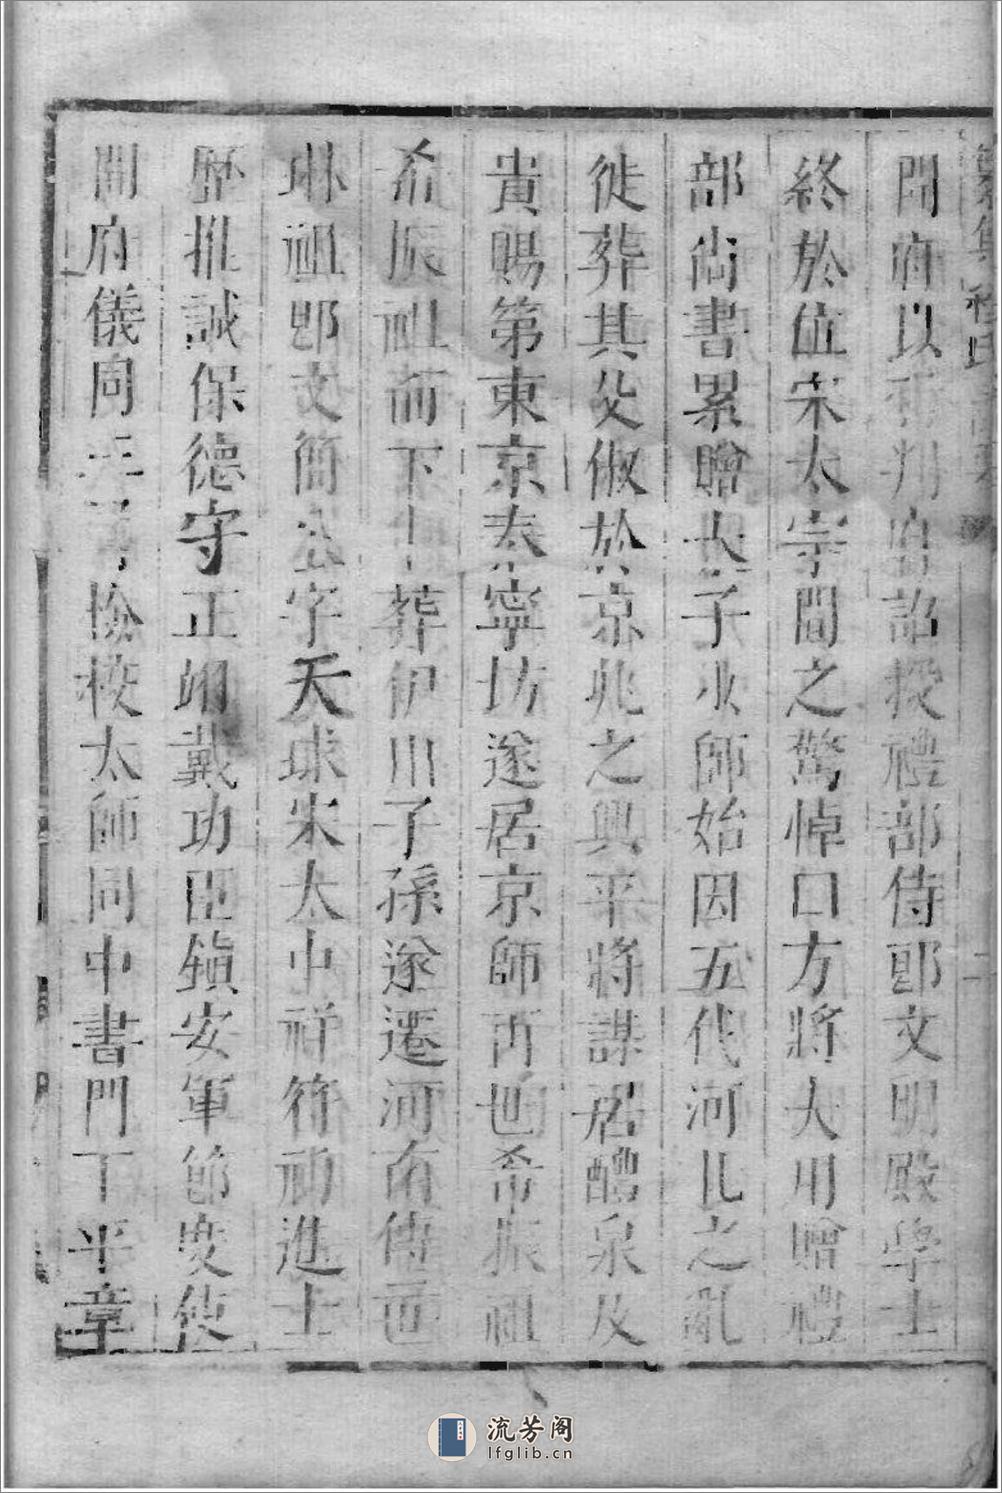 開府以判府詔授禮部侍郎文明殿學士
終於位宋太宗聞之驚悼曰方將大用贈禮
部尚書累贈太子少師始因五代河北之亂
徙葬其父俶於京兆之興平將謀居醴泉及
貴賜第東京泰寧坊遂居京師再世希振祖
希振祖而下十葬伊川子孫遂遷河南傳世
琳祖郎文簡公字天球宋太中祥符初進士
歷推誠保德守正翊戴功臣鎮安軍節度使
開府儀同三司檢校太師同中書門下平章
程氏
二
流芳阁
lfglib.cn